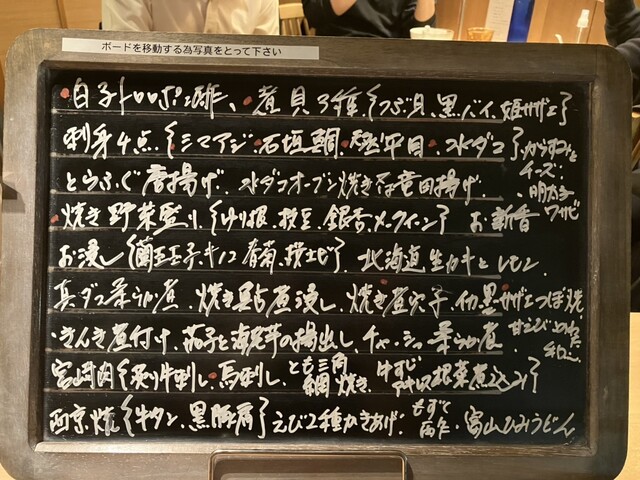 ボードを移動する為写真をとって下さい
白子トロロポン酢、煮貝3種{つぶ貝、黒バイ、姫サザエ}
刺身4点{シマアジ、石垣鯛、平目、水ダコ}からすみと
チーズ
明太子
ワサビ
とらふぐ唐揚げ、水ダコオープン焼き 竜田揚げ
焼き野菜盛り{ゆり根、枝豆、銀杏、メークイン} お新香
お浸し{玉子、キノコ、春菊、桜エビ}、北海道生カキとレモン
真ダコ柔らか煮、焼き 煮浸し、焼き煮穴子、サザエつぼ焼
きんき煮付け、茄子と海老芋の揚出し、チャーシュー柔らか煮
甘えび
宮崎肉{炙り牛刺し、馬刺し、とも三角
網焼き、牛すじ
アキレス根菜煮込み}
西京焼{牛タン、黒豚肩}えび2種かきあげ、もずく
富山ひみうどん